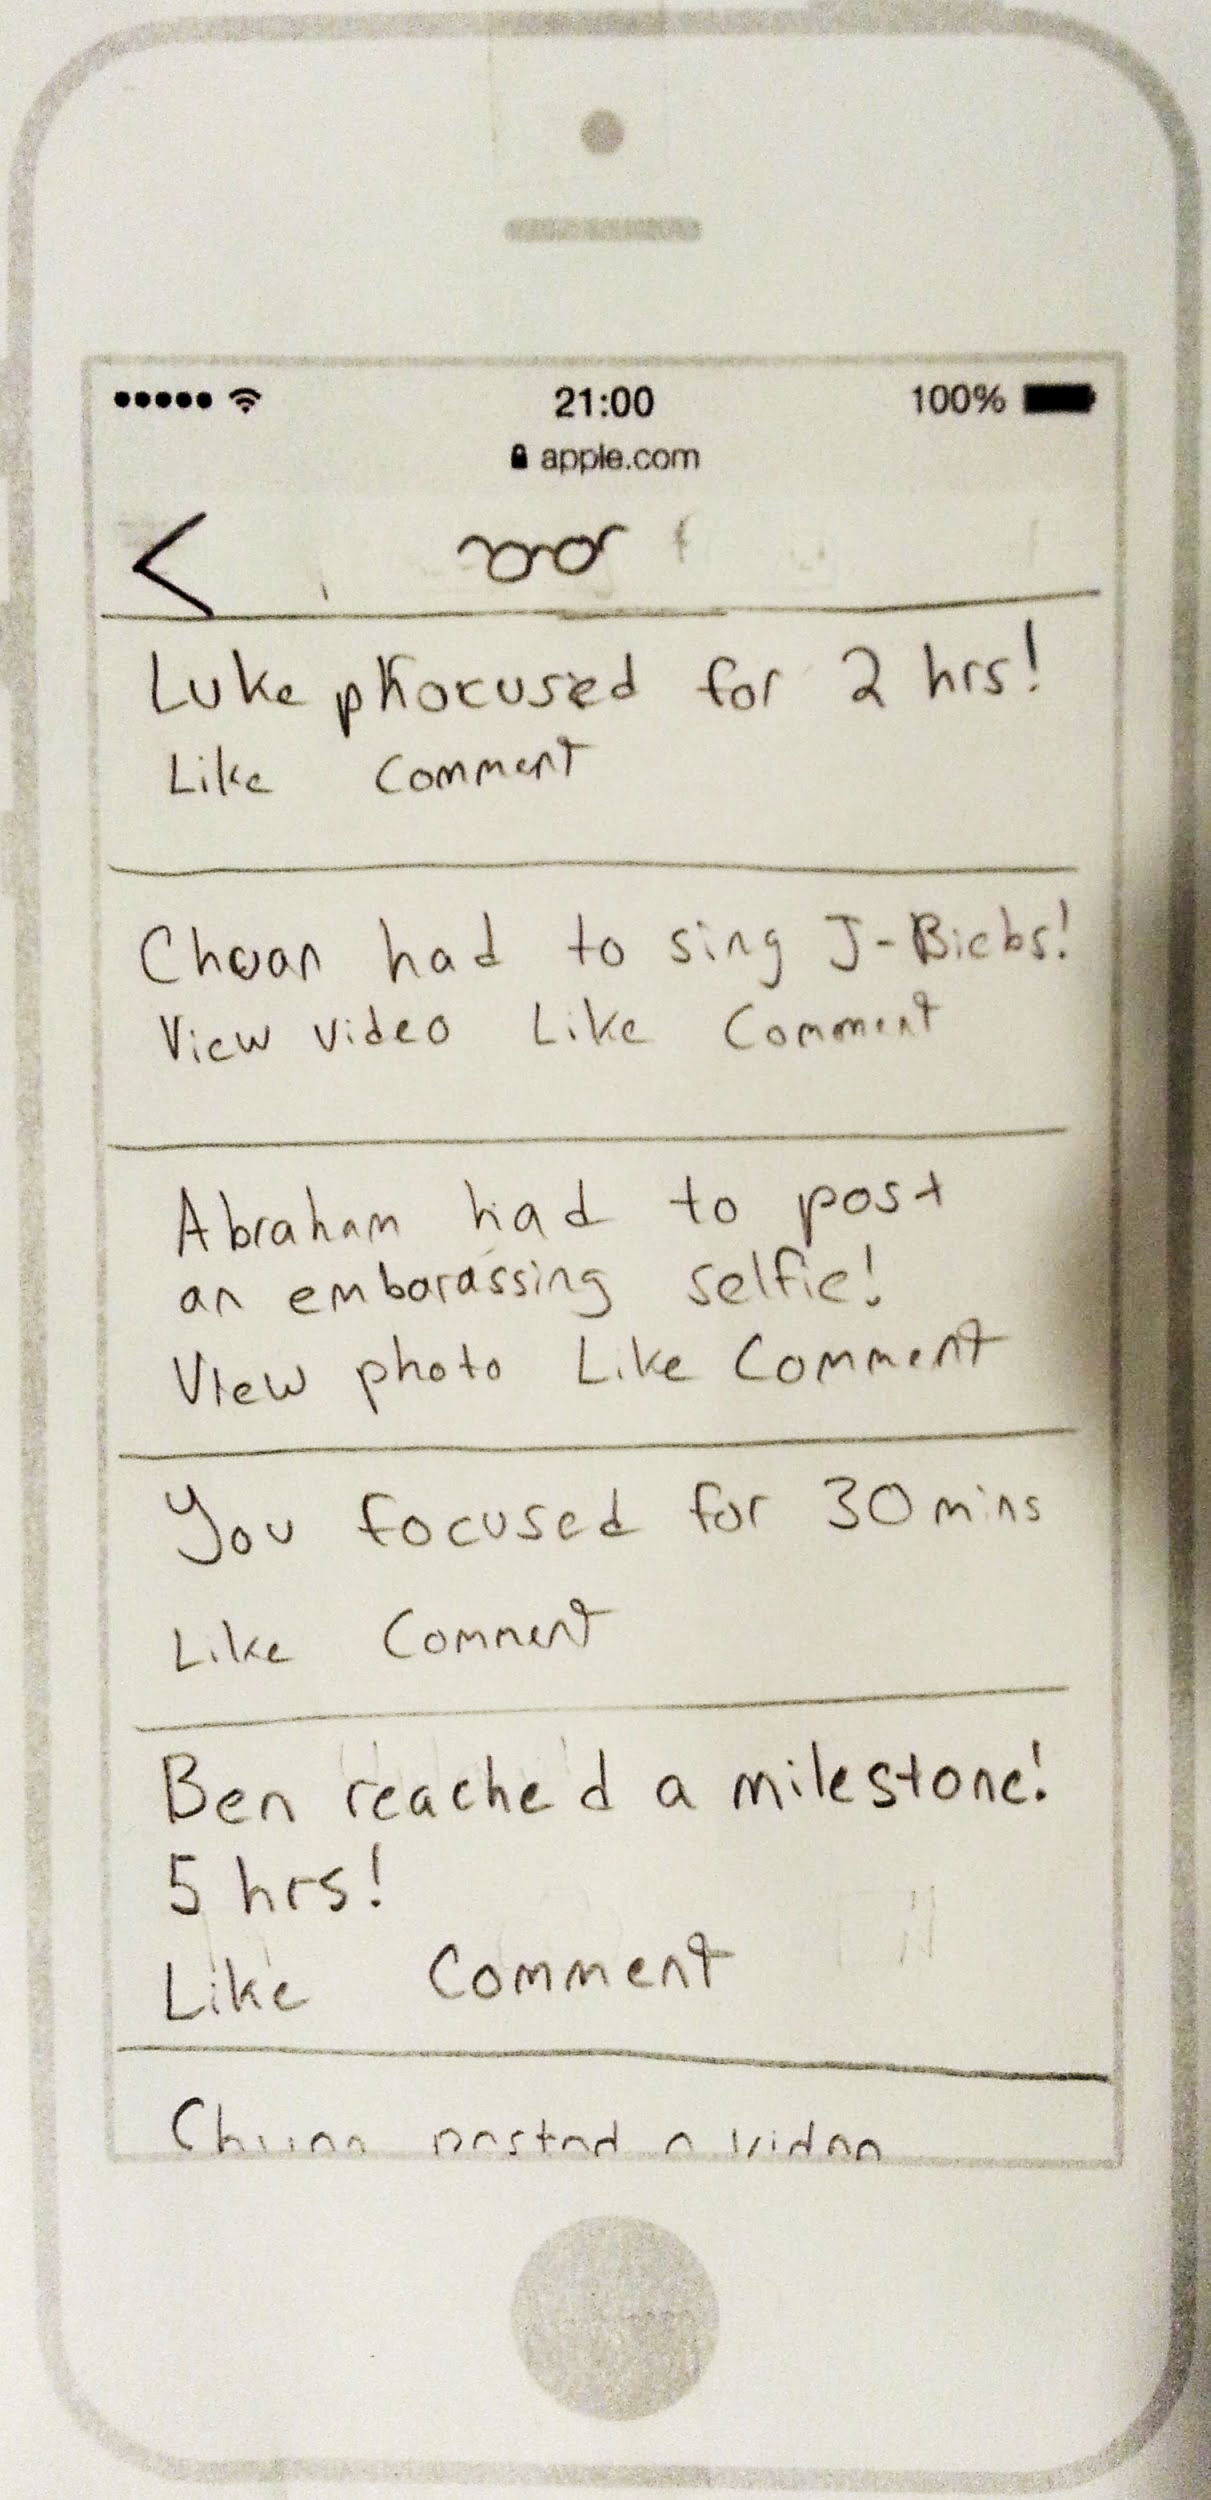 21:00
100%
apple.com
Luke phocused for 2 hrs!
Like Comment
had to sing J-Biebs!
View video Like Comment
Abraham had to post
an embarassing selfie!
View photo Like Comment
You focused for 30 mins
Like Comment
Ben reached a milestone!
5 hrs!
Like Comment
posted a video